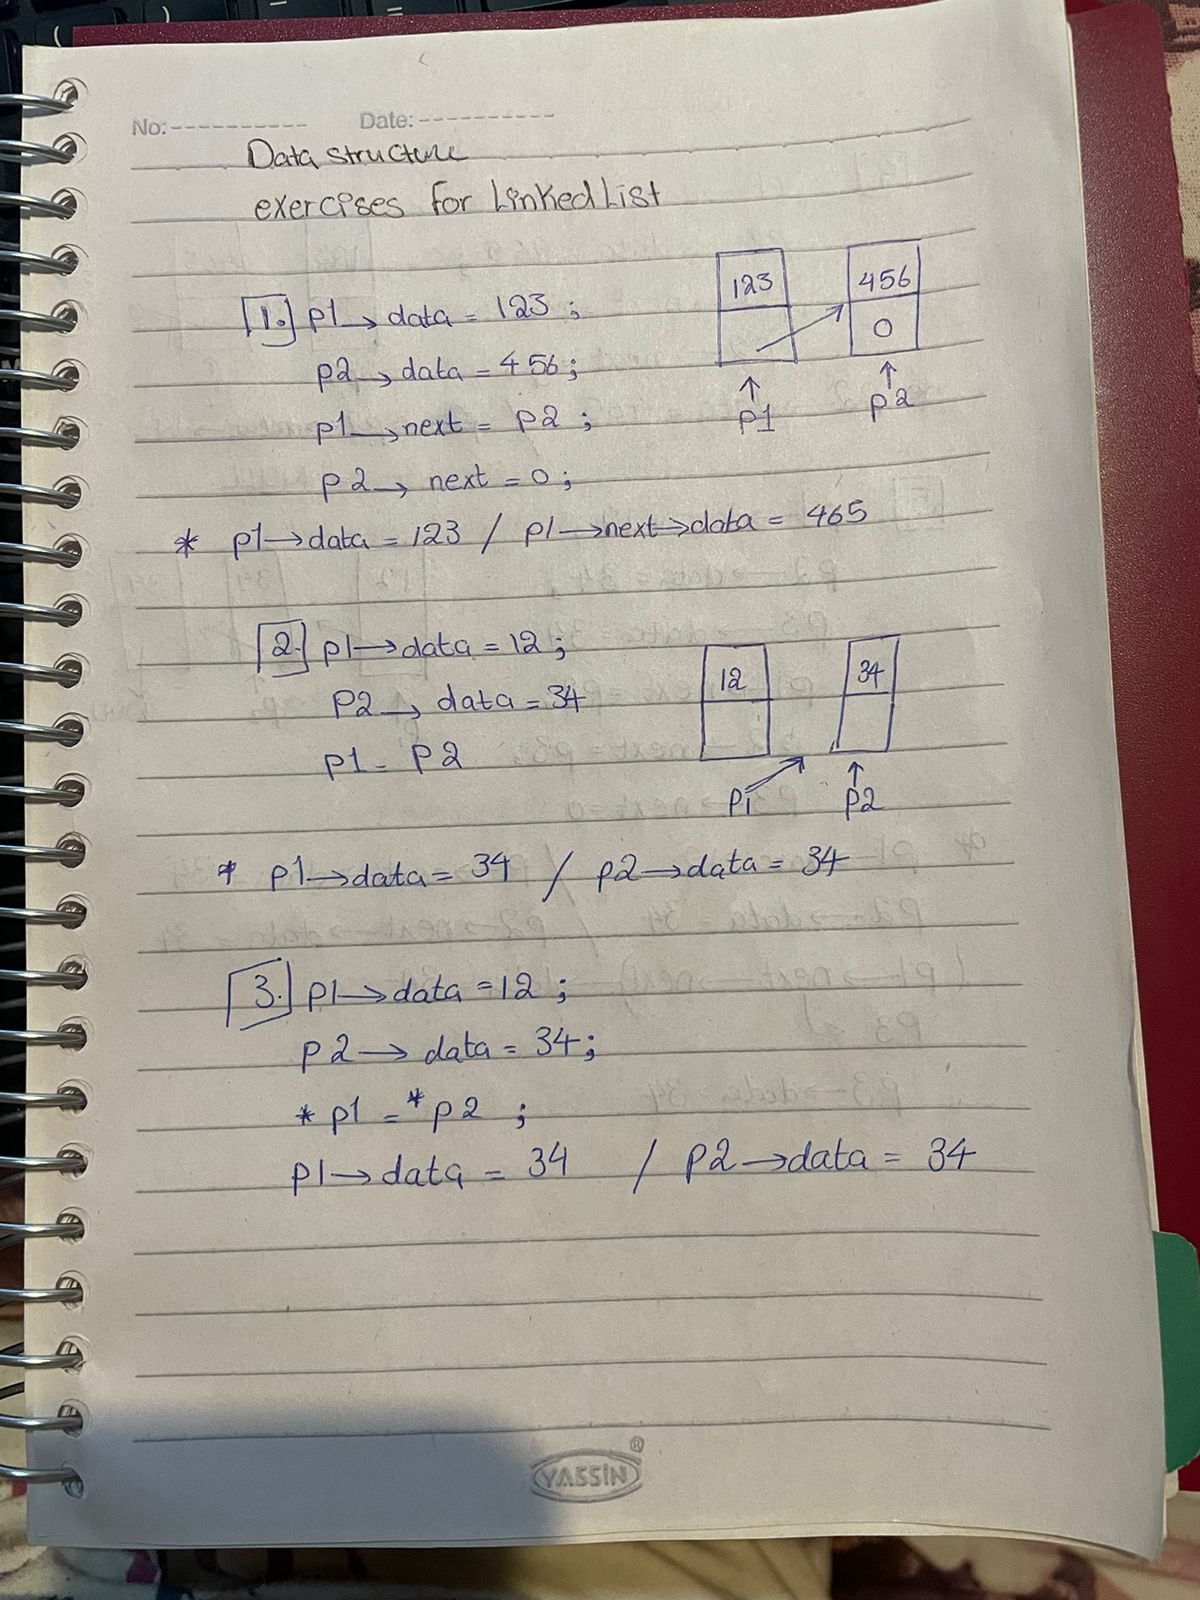 No:---------- Date:----------
Data structure
exercises for Linked List
1. p1→data = 123 ;
p2→data = 456;
p1→next = p2 ;
p2→next = 0;
123 456
0
p1 p2
* p1→data = 123 / p1→next→data = 465
2. p1→data = 12;
p2→data = 34
p1 = p2
12 34
p1 p2
* p1→data = 34 / p2→data = 34
3. p1→data = 12 ;
p2→data = 34;
*p1 = *p2 ;
p1→data = 34 / p2→data = 34
YASSIN ®